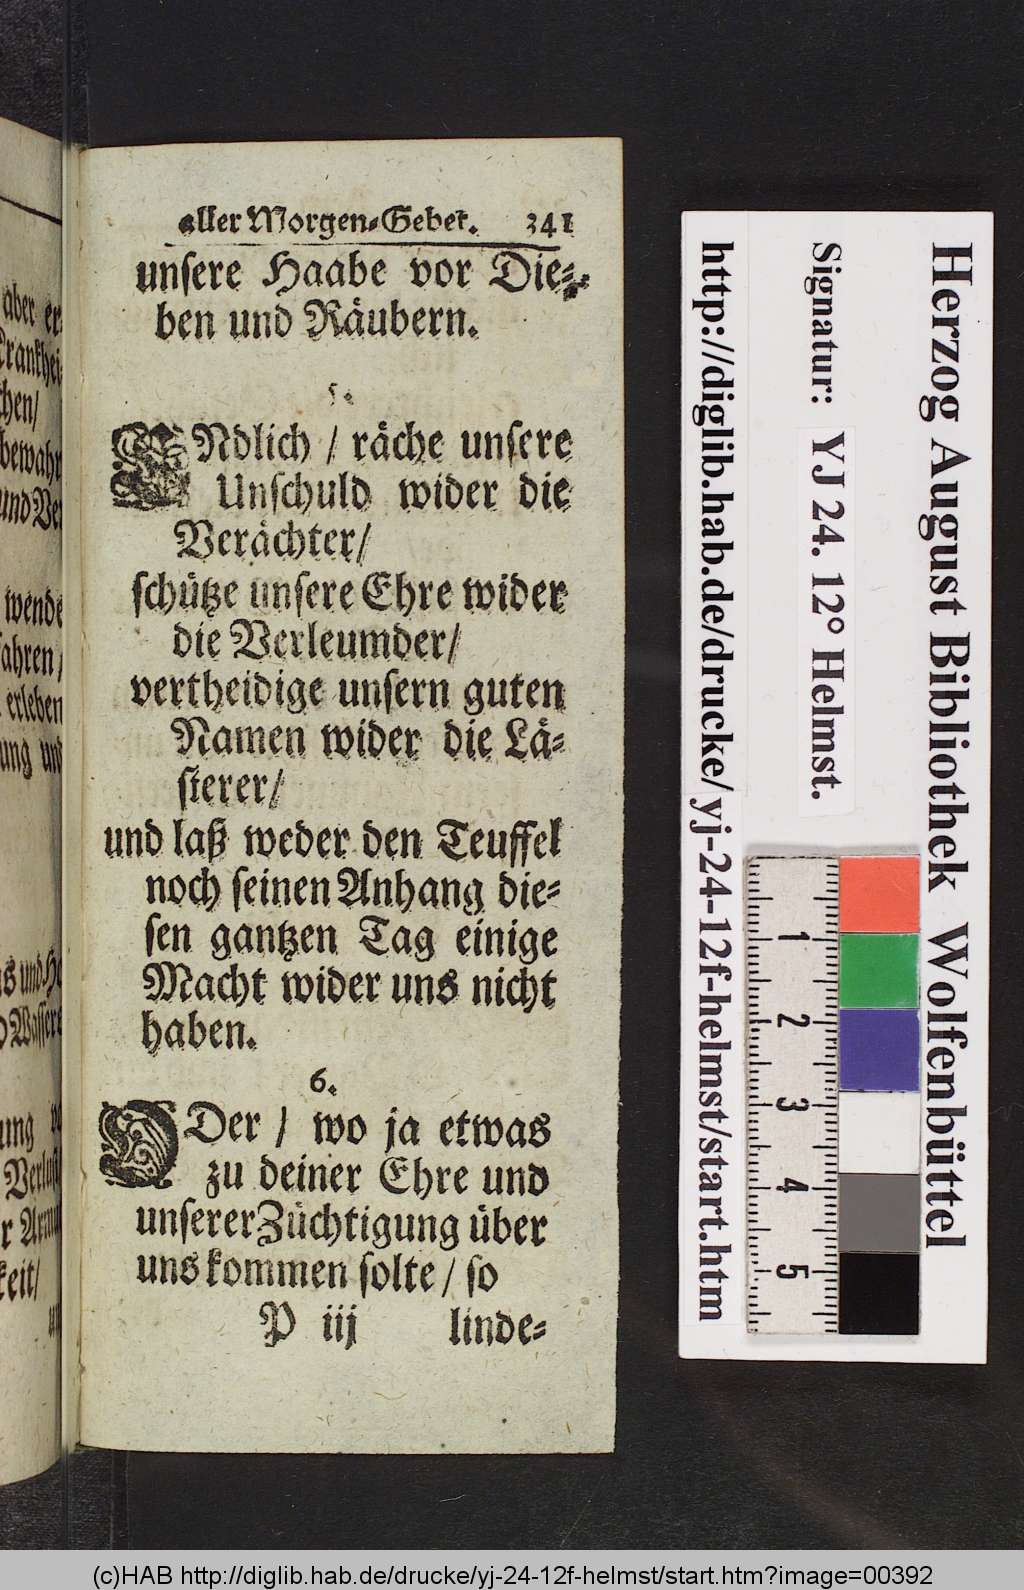 aller Morgen-Gebet. 341
unsere Haabe vor Die-
ben und Räubern.
5.
ENdlich / räche unsere
Unschuld wider die
Verächter/
schütze unsere Ehre wider
die Verleumder/
vertheidige unsern guten
Namen wider die Lä-
sterer/
und laß weder den Teuffel
noch seinen Anhang die-
sen gantzen Tag einige
Macht wider uns nicht
haben.
6.
ODer / wo ja etwas
zu deiner Ehre und
unserer Züchtigung über
uns kommen solte / so
P iij linde-
aber er-
chen/
bewahr
und Ver
wende
ahren /
erleben
ung und
keit/
Herzog August Bibliothek Wolfenbüttel
Signatur: YJ 24. 12° Helmst.
http://diglib.hab.de/drucke/yj-24-12f-helmst/start.htm
1
2
3
4
5
(c)HAB http://diglib.hab.de/drucke/yj-24-12f-helmst/start.htm?image=00392